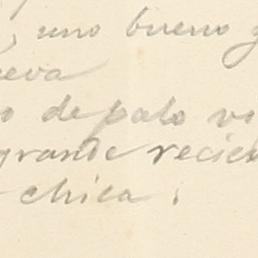 , uno bueno y
eva
o de palo vi
grande recie
chica.